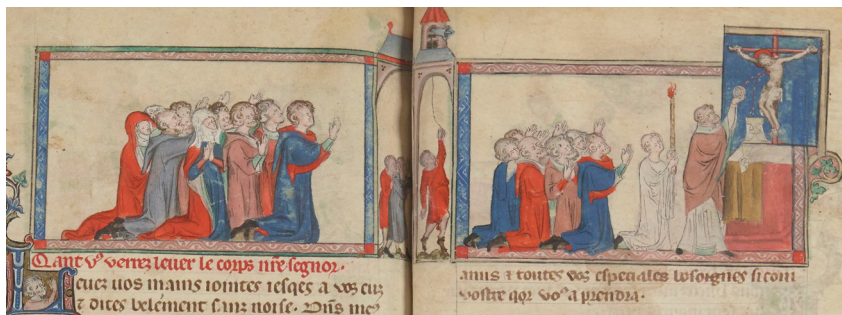 Qant vͦ verrez leuer le corps nr̄e segnor·
Leuez uos mains iointes iesqes a vos euz
⁊ dites belement sanz noise·
amis ⁊ toutes voz especiales besoignes si com
vostre qor voͦ a prendra·